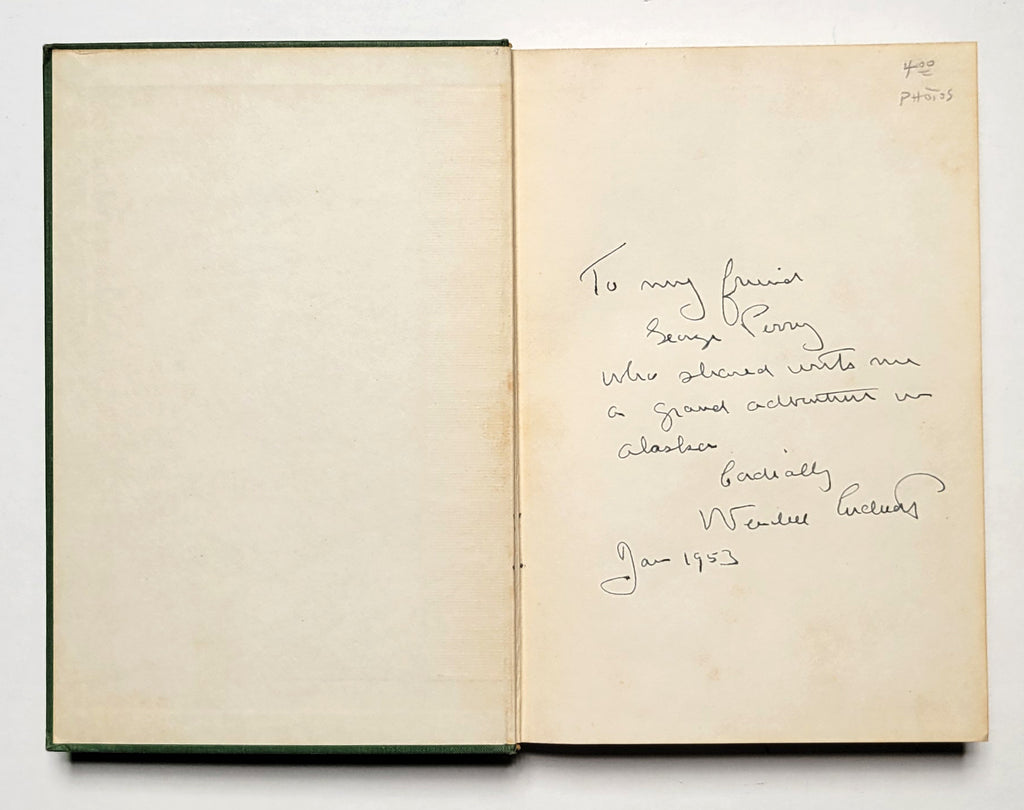 4.00
PHOTOS
To my friend
George Perry
who shared with me
a grand adventure in
Alaska
Cordially
Wendell
Jan 1953